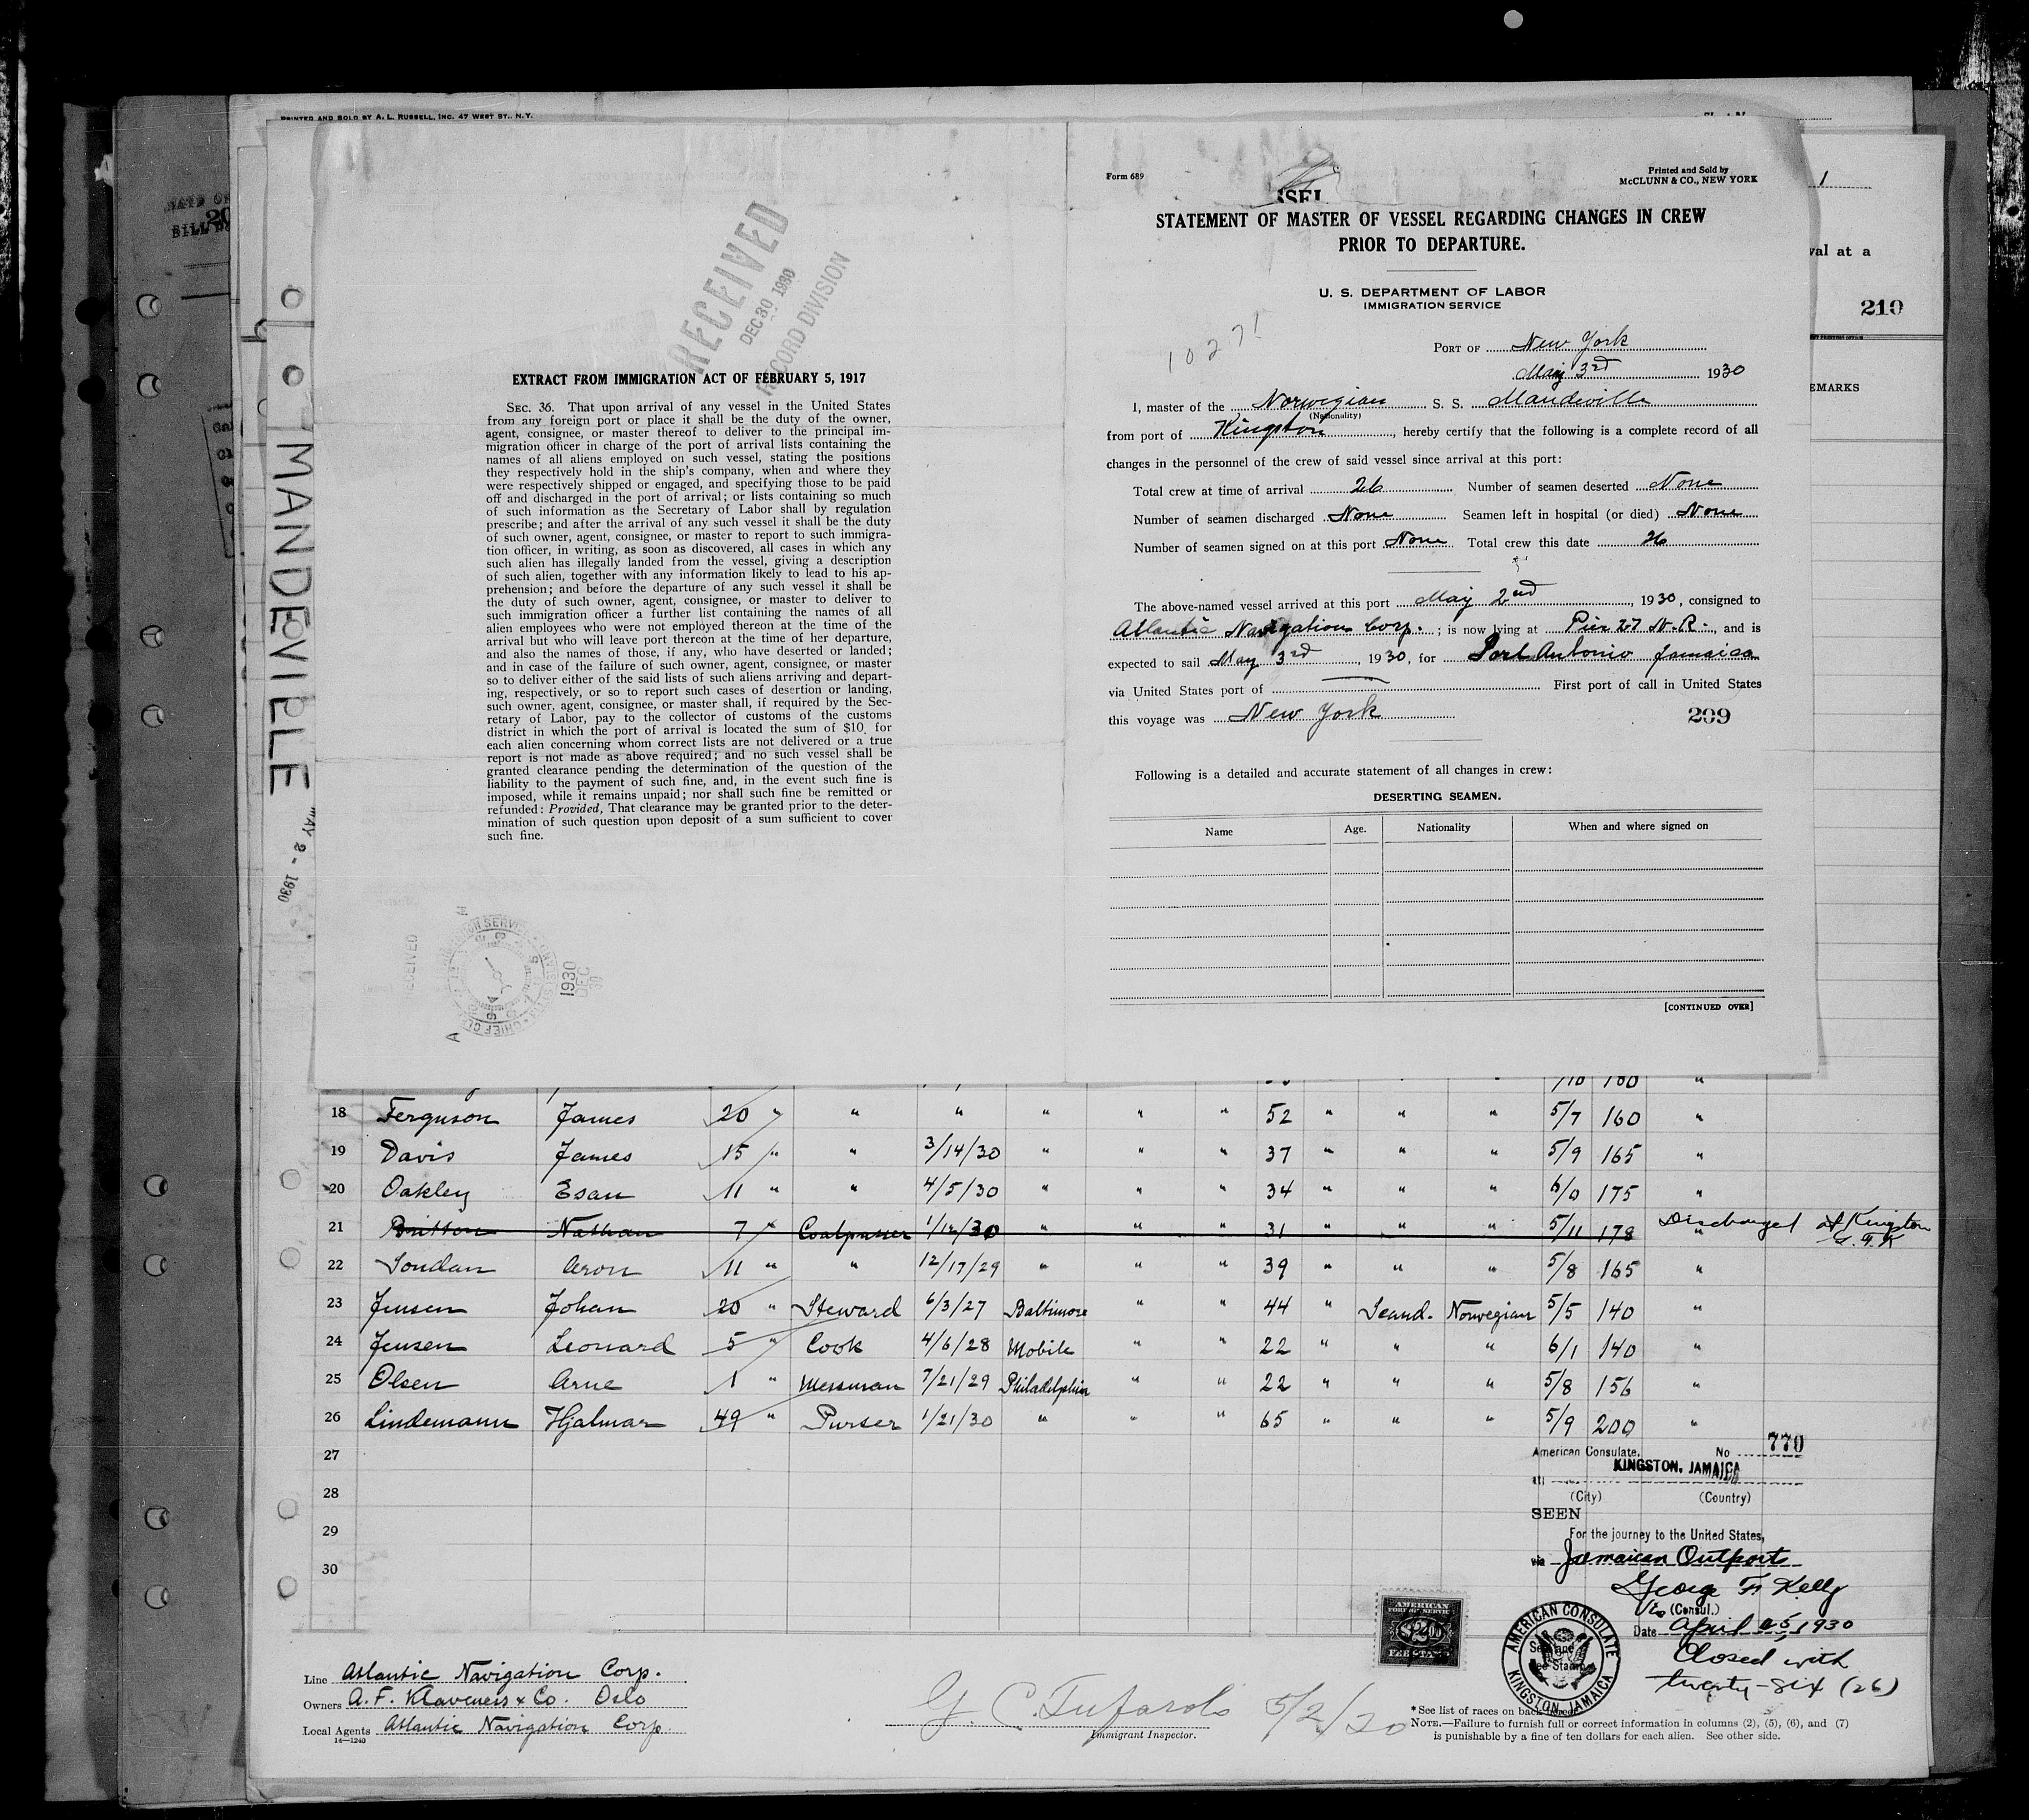 PRINTED AND SOLD BY A. L. RUSSELL, INC. 47 WEST ST., N.Y.
MANDEVILLE
MAY 2 - 1930
RECEIVED
DEC 30 1930
RECORD DIVISION
EXTRACT FROM IMMIGRATION ACT OF FEBRUARY 5, 1917
SEC. 36. That upon arrival of any vessel in the United States
from any foreign port or place it shall be the duty of the owner,
agent, consignee, or master thereof to deliver to the principal im-
migration officer in charge of the port of arrival lists containing the
names of all aliens employed on such vessel, stating the positions
they respectively hold in the ship's company, when and where they
were respectively shipped or engaged, and specifying those to be paid
off and discharged in the port of arrival; or lists containing so much
of such information as the Secretary of Labor shall by regulation
prescribe; and after the arrival of any such vessel it shall be the duty
of such owner, agent, consignee, or master to report to such immigra-
tion officer, in writing, as soon as discovered, all cases in which any
such alien has illegally landed from the vessel, giving a description
of such alien, together with any information likely to lead to his ap-
prehension; and before the departure of any such vessel it shall be
the duty of such owner, agent, consignee, or master to deliver to
such immigration officer a further list containing the names of all
alien employees who were not employed thereon at the time of the
arrival but who will leave port thereon at the time of her departure,
and also the names of those, if any, who have deserted or landed;
and in case of the failure of such owner, agent, consignee, or master
so to deliver either of the said lists of such aliens arriving and depart-
ing, respectively, or so to report such cases of desertion or landing,
such owner, agent, consignee, or master shall, if required by the Sec-
retary of Labor, pay to the collector of customs of the customs
district in which the port of arrival is located the sum of $10 for
each alien concerning whom correct lists are not delivered or a true
report is not made as above required; and no such vessel shall be
granted clearance pending the determination of the question of the
liability to the payment of such fine, and, in the event such fine is
imposed, while it remains unpaid; nor shall such fine be remitted or
refunded: Provided, That clearance may be granted prior to the deter-
mination of such question upon deposit of a sum sufficient to cover
such fine.
RECEIVED
1930
DEC
30
Form 689
Printed and Sold by
McCLUNN & CO., NEW YORK
STATEMENT OF MASTER OF VESSEL REGARDING CHANGES IN CREW
PRIOR TO DEPARTURE.
U. S. DEPARTMENT OF LABOR
IMMIGRATION SERVICE
PORT OF New York
May 3rd 1930
I, master of the Norwegian S. S. Mandeville
(Nationality)
from port of Kingston, hereby certify that the following is a complete record of all
changes in the personnel of the crew of said vessel since arrival at this port:
Total crew at time of arrival 26 Number of seamen deserted None
Number of seamen discharged None Seamen left in hospital (or died) None
Number of seamen signed on at this port None Total crew this date 26
The above-named vessel arrived at this port May 2nd, 1930, consigned to
Atlantic Navigation Corp. ; is now lying at Pier 27 N.R., and is
expected to sail May 3rd, 1930, for Port Antonio Jamaica
via United States port of First port of call in United States
this voyage was New York
209
Following is a detailed and accurate statement of all changes in crew:
DESERTING SEAMEN.
Name Age. Nationality When and where signed on
[CONTINUED OVER]
1
val at a
210
EMARKS
18 Ferguson James 20 " " " " " " 52 " " " 5/7 160 "
19 Davis James 15 " " 3/14/30 " " " 37 " " " 5/9 165 "
20 Oakley Esau 11 " " 4/5/30 " " " 34 " " " 6/0 175 "
21 Britton Nathan 7 " Coalpasser 1/12/30 " " " 31 " " " 5/11 178 " Discharged at Kingston
G.F.K
22 Aron 11 " " 12/17/29 " " " 39 " " " 5/8 165 "
23 Jensen Johan 20 " Steward 6/3/27 Baltimore " " 44 " Scand. Norwegian 5/5 140 "
24 Jensen Leonard 5 " Cook 4/6/28 Mobile " " 22 " " " 6/1 140 "
25 Olsen Arne 1 " Messman 7/21/29 Philadelphia " " 22 " " " 5/8 156 "
26 Lindemann Hjalmar 49 " Purser 1/21/30 " " " 65 " " " 5/9 200 "
27
28
29
30
American Consulate, No 770
KINGSTON, JAMAICA
(City) (Country)
SEEN
For the journey to the United States,
via Jamaican Outports
George F. Kelly
Vice (Consul.)
Date April 25, 1930
Closed with
twenty-six (26)
AMERICAN CONSULATE
KINGSTON, JAMAICA
Line Atlantic Navigation Corp.
Owners A. F. Klaveness & Co. Oslo
Local Agents Atlantic Navigation Corp.
14—1240
5/2/30
Immigrant Inspector.
* See list of races on back
NOTE.—Failure to furnish full or correct information in columns (2), (5), (6), and (7)
is punishable by a fine of ten dollars for each alien. See other side.